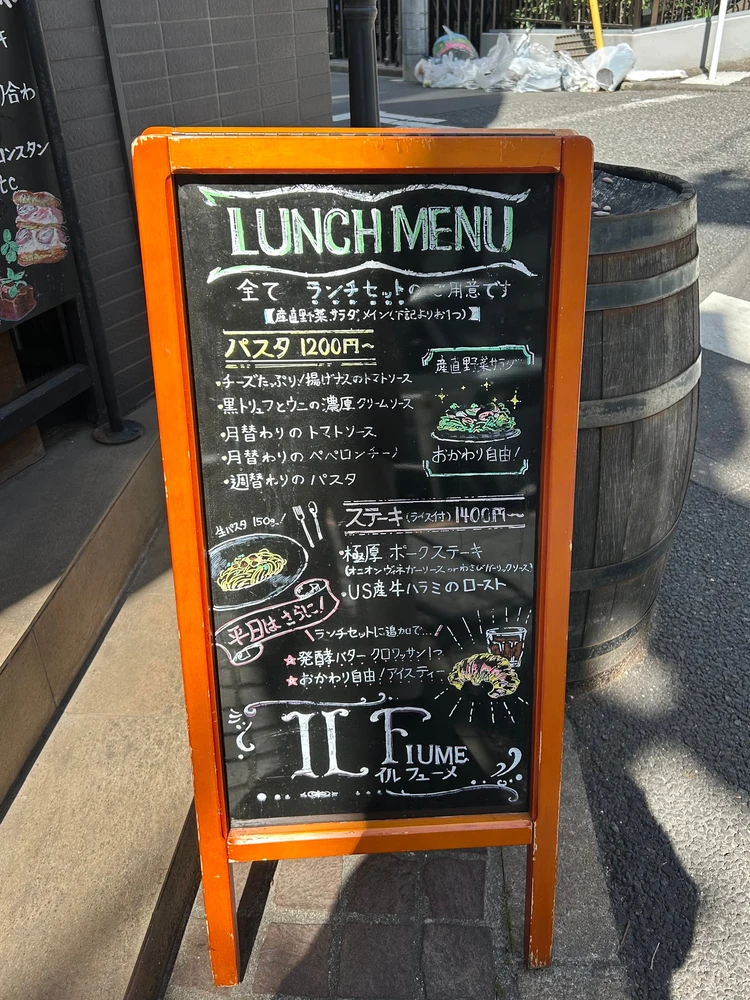 り合わ
コンスタン
etc
LUNCH MENU
全て ランチセットのご用意です
【産直野菜サラダ、メイン(下記よりお1つ)】
パスタ 1200円~
・チーズたっぷり!揚げナスのトマトソース
・黒トリュフとウニの濃厚クリームソース
・月替わりのトマトソース
・月替わりのペペロンチーノ
・週替わりのパスタ
産直野菜サラダ
おかわり自由!
生パスタ 150g!
ステーキ(ライス付)1400円~
・極厚 ポークステーキ
(オニオンヴィネガーソース orわさびガーリックソース)
・US産牛ハラミのロースト
平日はさらに!
\ランチセットに追加で…/
★発酵バタークロワッサン1つ
★おかわり自由!アイスティー
IL FIUME
イル フューメ